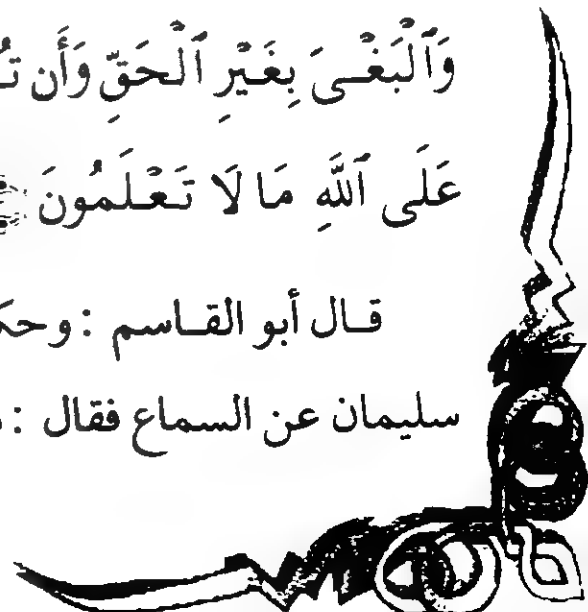 وَٱلْبَغْىَ بِغَيْرِ ٱلْحَقِّ وَأَن
عَلَى ٱللَّهِ مَا لَا تَعْلَمُونَ
قال أبو القاسم :
سليمان عن السماع فقال :